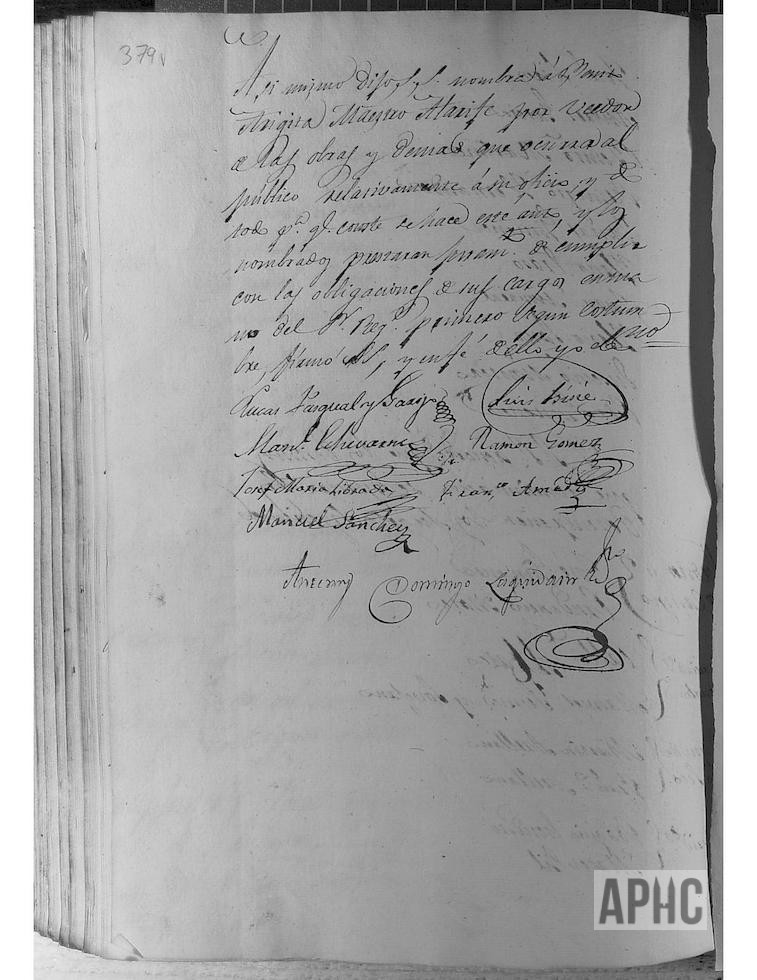 379v
Asi mismo dijo S. S. nombra á Benit
Arigita Maestro Alarife por Veedor
de las obras y demas que ocurra al
público relativamente á su oficio, y de
todo pa. qe. conste se hace este auto, y los
nombrados prestaran juramto. de cumplir
con las obligaciones de sus cargos en ma
no del Sr. Regr. primero segun costum
bre, firmó SS., y en fé de ello yo el ssno
Lucas Pasqual y Garijo Luis
Manl. Echevarria Ramon Gomez
Josef Maria Librada Franco.
Manuel Sanchez
Antemi Domingo Laquidain
APHC